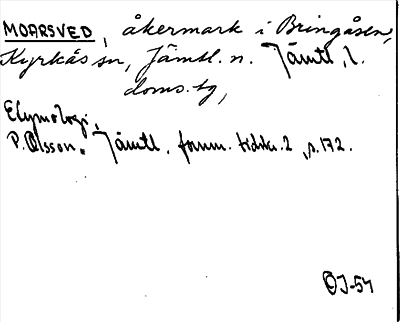 MOARSVED, åkermark i Bringåsen,
Kyrkås sn, Jämtl. n. Jämtl. l.
doms.tg,
Etymologi.
P. Olsson. Jämtl. fornm. tidskr. 2, s. 172.
ÖJ-54